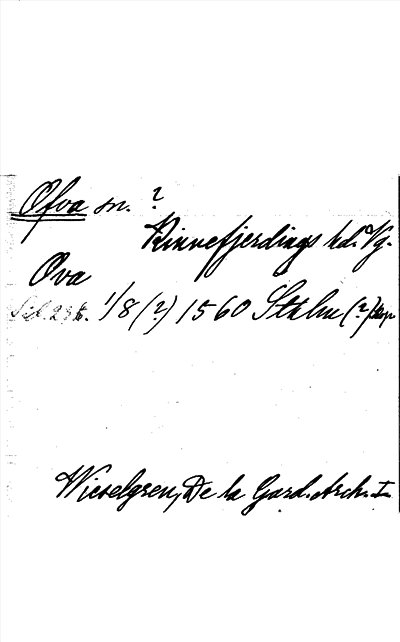 Ofva sn. ?
Kinnefjerdings hd. Vg.
Ova
1/8 (?) 1560 Sthlm (?)
Wieselgren, De la Gard. Arch. I